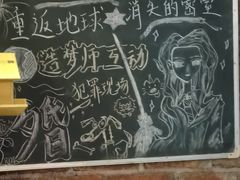 重返地球 消失的密室
造梦师互动
犯罪现场